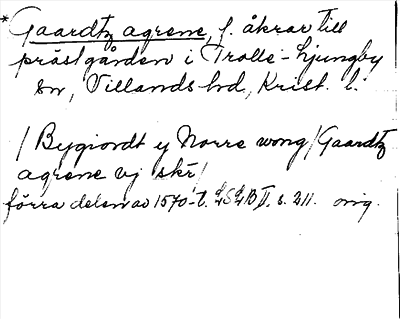 *Gaardtz agrene, f. åkrar till
prästgården i Trolle-Ljungby
sn, Villands hd, Krist. l.
/ Bygiordt y Norre wong / Gaardtz
agrene vj skr /
förra delen av 1570-t. LSLB II. s. 211. orig.